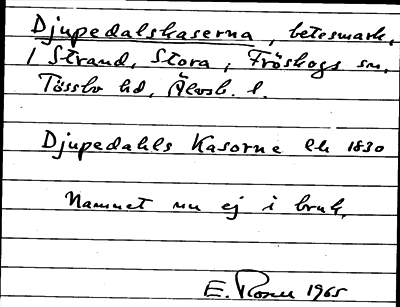 Djupedalskaserna, betesmark,
i Strand, Stora, Fröskogs sn,
Tössbo hd, Älvsb. l.
Djupedahls Kasorne lh 1830
Namnet nu ej i bruk.
E. Rosell 1965